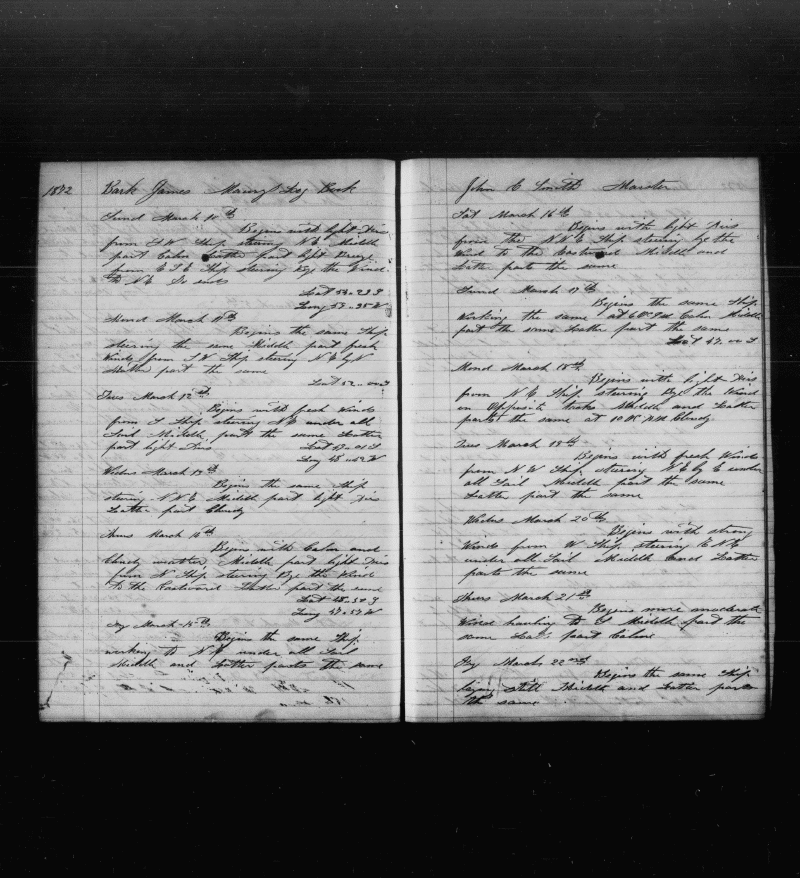 1872 Bark James Maury Log Book
Sund March 10th
Begins with light Airs
from S W Ship steering N E Middle
part Calm Latter part light Breeze
from E S E Ship steering Bye the Wind
to N E So ends
Lat 53.23 S
Long 53.35 W
Mond March 11th
Begins the same Ship
steering the same Middle part fresh
Winds from S W Ship steering N E by N
Latter part the same
Lat 52.00 S
Tues March 12th
Begins with fresh Winds
from S Ship steering N E under all
Sail Middle part the same Latter
part light Airs
Long 48.42 W
Wednes March 13th
Begins the same Ship
steering N N E Middle part light Airs
Latter part Cloudy
Thurs March 14th
Begins with Calm and
Cloudy weather Middle part light Airs
from N Ship steering Bye the Wind
to the Eastward Latter part the same
Lat 48.32 S
Long 47.57 W
Fry March 15th
Begins the same Ship
working to N E under all Sail
Middle and Latter parts the same
John C Smith Master
Sat March 16th
Begins with light Airs
from the N N E Ship steering bye the
Wind to the Eastward Middle and
Latter parts the same
Sund March 17th
Begins the same Ship
Working the same at 6 OC PM Calm Middle
part the same Latter part the same
Lat 47.00 S
Mond March 18th
Begins with light Airs
from N E Ship steering Bye the Wind
on Opposite tacks Middle and Latter
parts the same at 10 OC AM Cloudy
Tues March 19th
Begins with fresh Winds
from N W Ship steering N E by E under
all Sail Middle part the same
Latter part the same
Wednes March 20th
Begins with strong
Winds from W Ship steering E N E
under all Sail Middle and Latter
parts the same
Thurs March 21st
Begins more moderate
Wind hauling to S Middle part the
same Latt part Calm
Fry March 22nd
Begins the same Ship
laying still Middle and Latter parts
the same